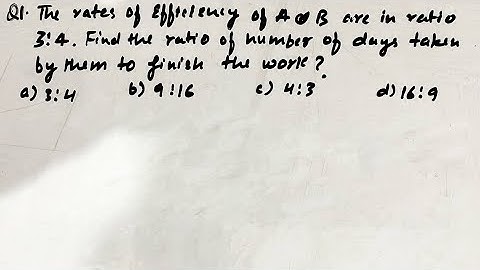 Q1. The rates of Efficiency of A & B are in ratio
3:4. Find the ratio of number of days taken
by them to finish the work?
a) 3:4 b) 9:16 c) 4:3 d) 16:9